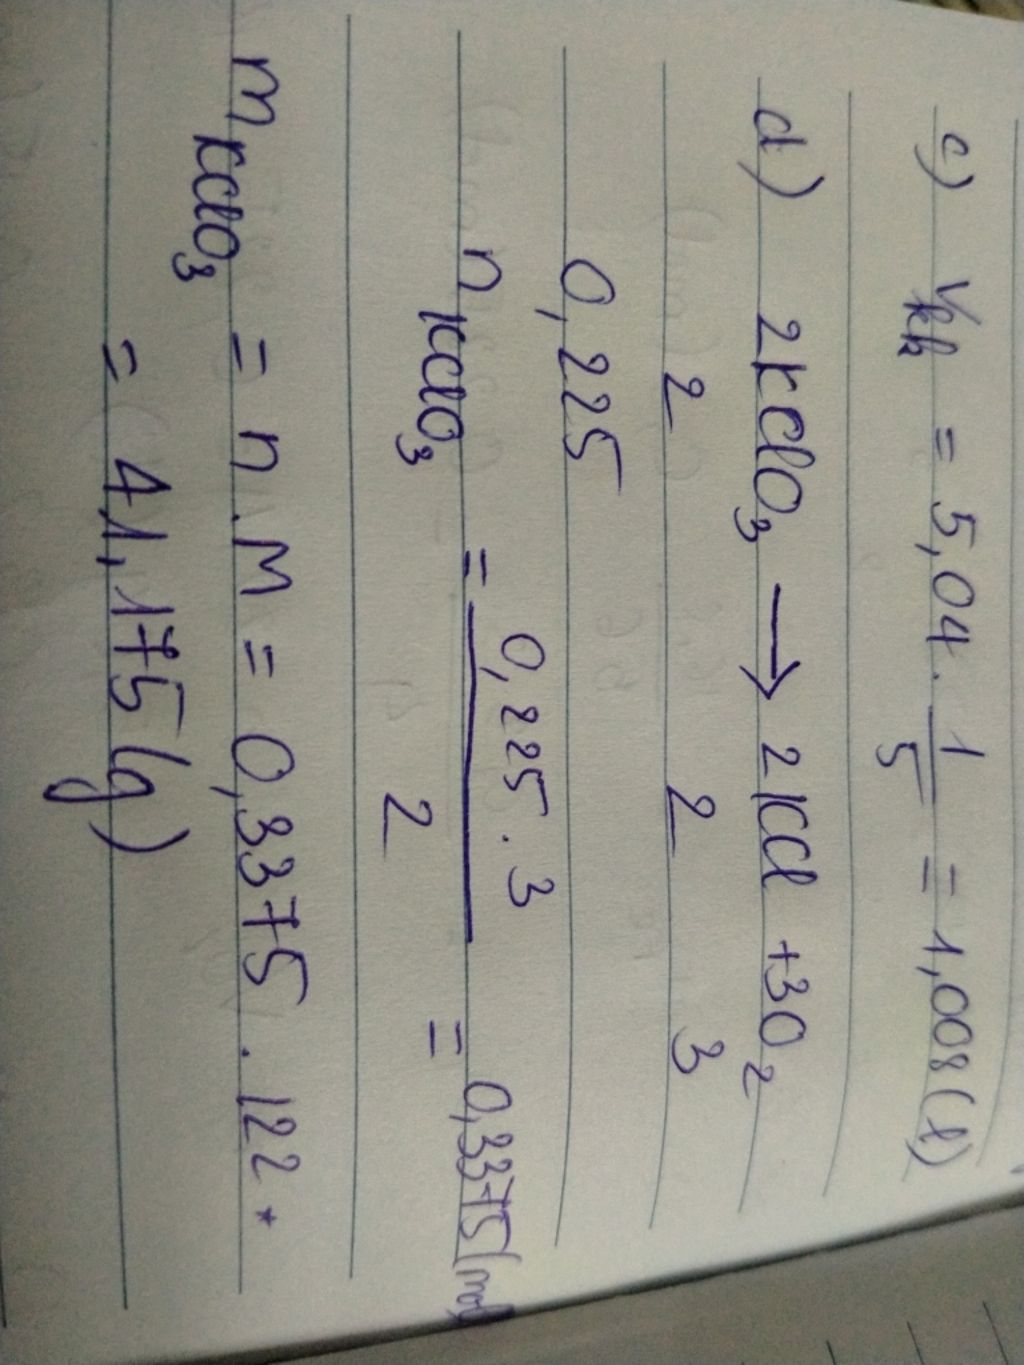 c) Vkk = 5,04 . 1/5 = 1,008 (l)
d) 2KClO3 → 2KCl + 3O2
2 2 3
0,225
nKClO3 = 0,225 . 3 / 2 = 0,3375 (mol)
mKClO3 = n . M = 0,3375 . 122 *
= 41,175 (g)